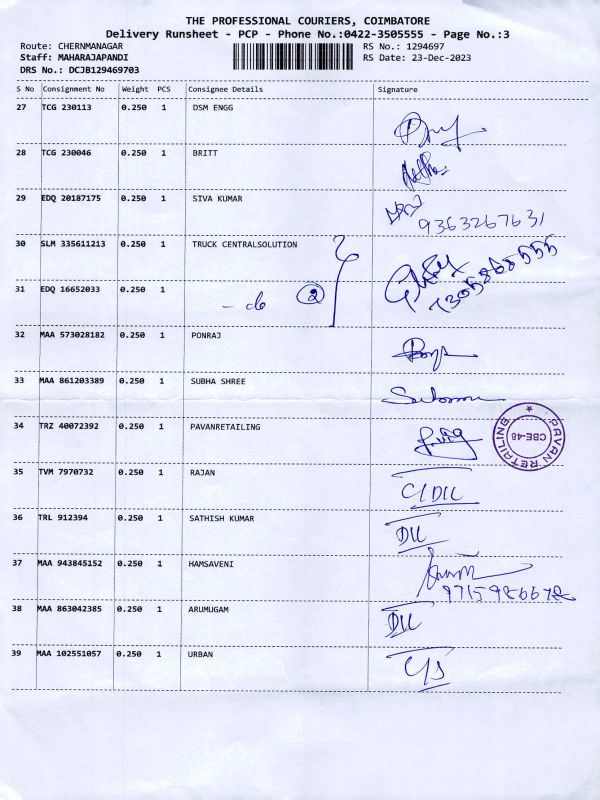 THE PROFESSIONAL COURIERS, COIMBATORE
Delivery Runsheet - PCP - Phone No.:0422-3505555 - Page No.:3
Route: CHERNMANAGAR RS No.: 1294697
Staff: MAHARAJAPANDI RS Date: 23-Dec-2023
DRS No.: DCJB129469703
S No Consignment No Weight PCS Consignee Details Signature
27 TCG 230113 0.250 1 DSM ENGG
28 TCG 230046 0.250 1 BRITT
29 EDQ 20187175 0.250 1 SIVA KUMAR
9363267631
30 SLM 335611213 0.250 1 TRUCK CENTRALSOLUTION
31 EDQ 16652033 0.250 1 - do 2
32 MAA 573028182 0.250 1 PONRAJ
33 MAA 861203389 0.250 1 SUBHA SHREE
34 TRZ 40072392 1 0.250 1 PAVANRETAILING
PAVAN RETAILING
CBE-48
35 TVM 7970732 0.250 1 RAJAN
C/DIL
36 TRL 912394 0.250 1 SATHISH KUMAR
DIL
37 MAA 943845152 0.250 1 HAMSAVENI
38 MAA 863042385 0.250 1 ARUMUGAM
DIL
39 MAA 102551057 0.250 1 URBAN
C/S